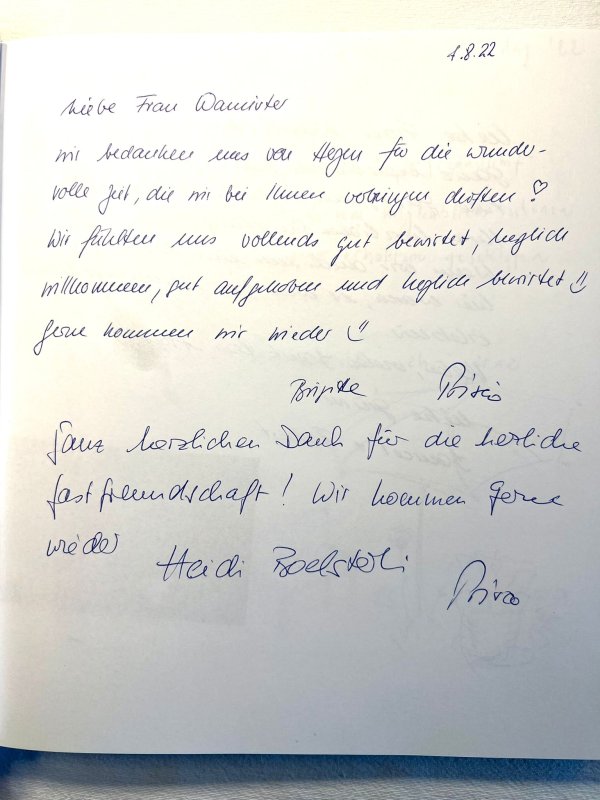 1.8.22
Liebe Frau
wir bedanken uns von Herzen für die wunder-
volle Zeit, die wir bei Ihnen verbringen durften!
Wir fühlten uns vollends gut bewirtet, herzlich
willkommen, gut aufgehoben und herzlich bewirtet
Gerne kommen wir wieder
Brigitte
Ganz herzlichen Dank für die herzliche
Gastfreundschaft! Wir kommen gerne
wieder
Heidi